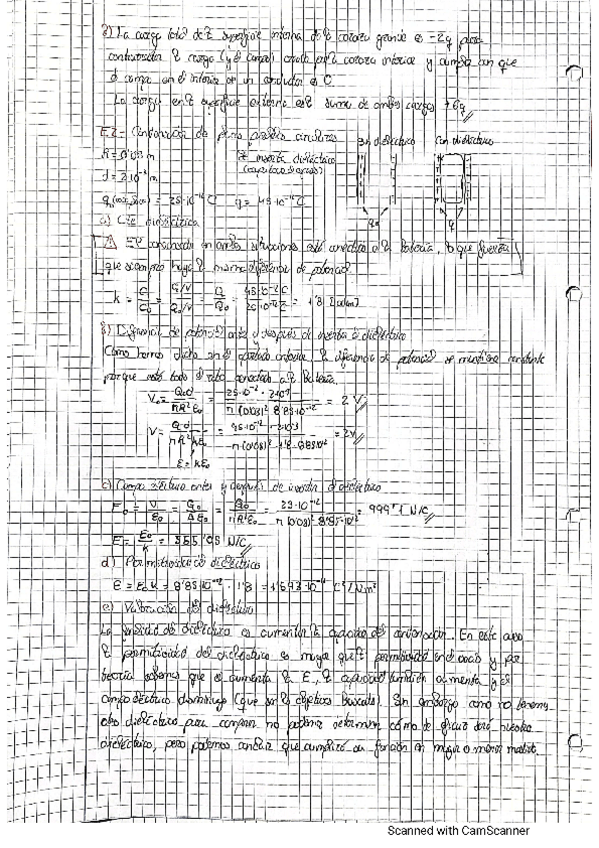 2) La carga total de la superficie interna de la coraza grande es -2q para
contrarrestar la carga (y el campo) creada por la coraza interior y cumpla con que
el campo en el interior de un conductor es 0.
La carga en la superficie externa es la suma de ambas cargas +6q
E.2- Condensador de placas paralelas circulares
Sin dieléctrico
Con dieléctrico
R = 0'03 m
Se inserta dieléctrico
d = 2·10⁻³ m
q₀ = 25·10⁻¹² C
q = 45·10⁻¹² C
q₀
q
a) Cte dieléctrica
El condensador en ambas situaciones está conectado a la batería, lo que fuerza
que siempre haya la misma diferencia de potencial.
k = C/C₀ = Q/V / Q₀/V = Q/Q₀ = 45·10⁻¹² C / 25·10⁻¹² C = 1'8
b) Diferencia de potencial antes y después de insertar el dieléctrico
Como hemos dicho en el apartado anterior, la diferencia de potencial se mantiene constante
porque está todo el rato conectado a la batería.
V₀ = Q₀d / πR²ε₀ = 25·10⁻¹² · 2·10⁻³ / π(0'03)² 8'85·10⁻¹² = 2 V
V = Qd / πR²kε₀ = 45·10⁻¹² · 2·10⁻³ / π(0'03)²·1'8·8'85·10⁻¹² = 2V
ε = kε₀
c) Campo eléctrico antes y después de insertar el dieléctrico
E₀ = = Q₀ / Aε₀ = Q₀ / πR²ε₀ = 25·10⁻¹² / π(0'03)² 8'85·10⁻¹² = 999'1 N/C
E = E₀/k = 555'05 N/C
d) Permitividad del dieléctrico
ε = ε₀ k = 8'85·10⁻¹² · 1'8 = 1'593·10⁻¹¹ C²/Nm²
e) Valoración del dieléctrico
La función del dieléctrico es aumentar la capacidad del condensador. En este caso
la permitividad del dieléctrico es mayor que la permitividad en el vacío y por
teoría sabemos que si aumenta la ε, la capacidad también aumenta y el
campo eléctrico disminuye (que son los objetivos buscados). Sin embargo como no tenemos
otro dieléctrico para comparar no podemos determinar cómo de eficaz será nuestro
dieléctrico, pero podemos concluir que cumplirá su función en mayor o menor medida.
Scanned with CamScanner